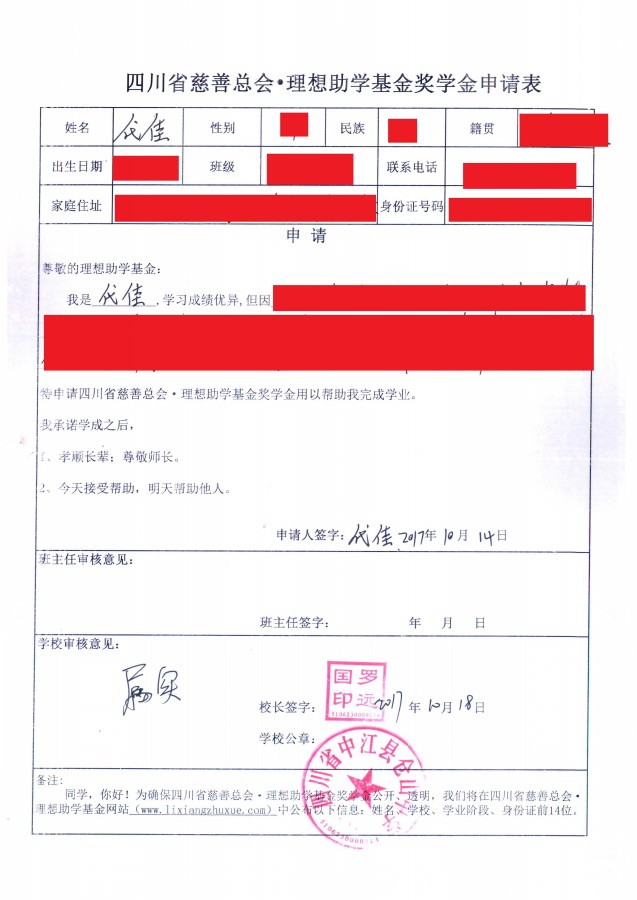 四川省慈善总会•理想助学基金奖学金申请表
姓名 代佳 性别 民族 籍贯
出生日期 班级 联系电话
家庭住址 身份证号码
申请
尊敬的理想助学基金：
我是代佳,学习成绩优异,但因
特申请四川省慈善总会•理想助学基金奖学金用以帮助我完成学业。
我承诺学成之后，
1、孝顺长辈；尊敬师长。
2、今天接受帮助，明天帮助他人。
申请人签字：代佳 2017年10月14日
班主任审核意见：
班主任签字： 年 月 日
学校审核意见：
属实
国罗
印远
校长签字： 2017年10月18日
学校公章：
四川省中江县仓山中学
备注：
同学，你好！为确保四川省慈善总会•理想助学基金奖学金公开、透明，我们将在四川省慈善总会•
理想助学基金网站（www.lixiangzhuxue.com）中公布以下信息：姓名、学校、学业阶段、身份证前14位。